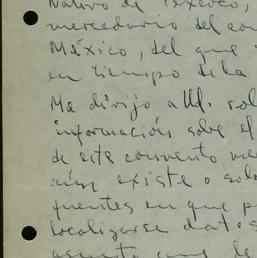 Nativo de Texcoco,
mercedario del con
México, del que
en tiempo de la
Me dirijo a Ud. sol
información sobre el
de este convento me
aún existe o solo
fuentes en que p
localizarse datos
asunto que le